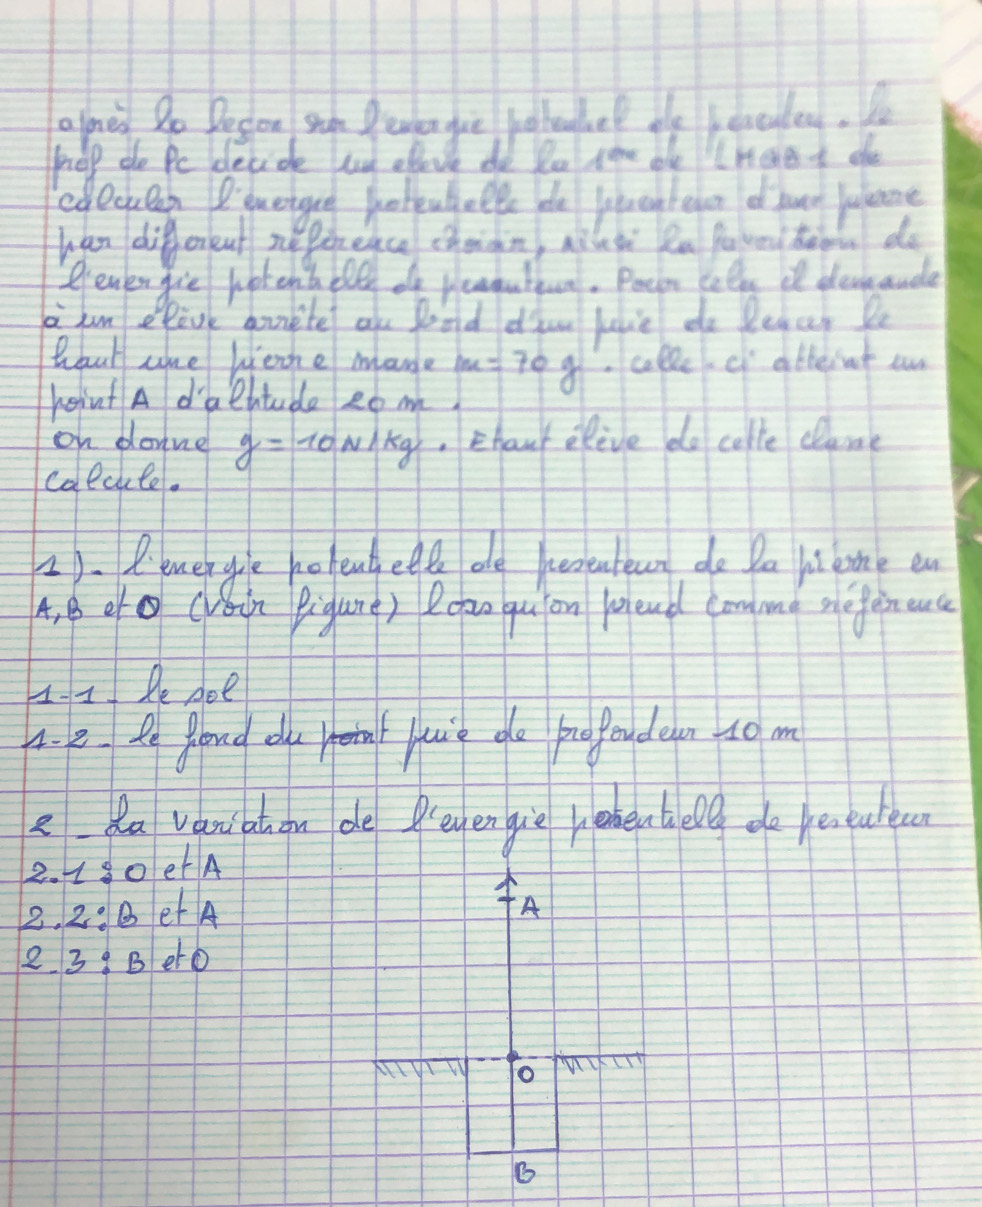 après la leçon sur l'energie potentiel de pesenteu. le
prof de Pc decide un eleve de la 1ere de LMGB1 de
calculer l'energie potentielle de pesenteur d'une pierre
par different réference choisir, ainsi la de
l'energie potentielle de pesenteur. Pour cela il demande
à un élève arrêté au bord d'un puie de lencer le
haut une pierre masse m = 70 g. celle-ci atteint un
point A d'altitude 20 m.
On donne g = 10 N/kg. Etant élève de cette classe
calcule.
1)- l'energie potentielle de pesenteur de la pierre en
A, B et O (voir figure) lorsqu'on prend comme réference
1-1- le sol
1-2- le fond du point puie de profondeur 10 m
2 - La variation de l'energie potentielle de pesenteur
2.1 : O et A
2.2 : B et A
2.3 : B et O
A
O
B